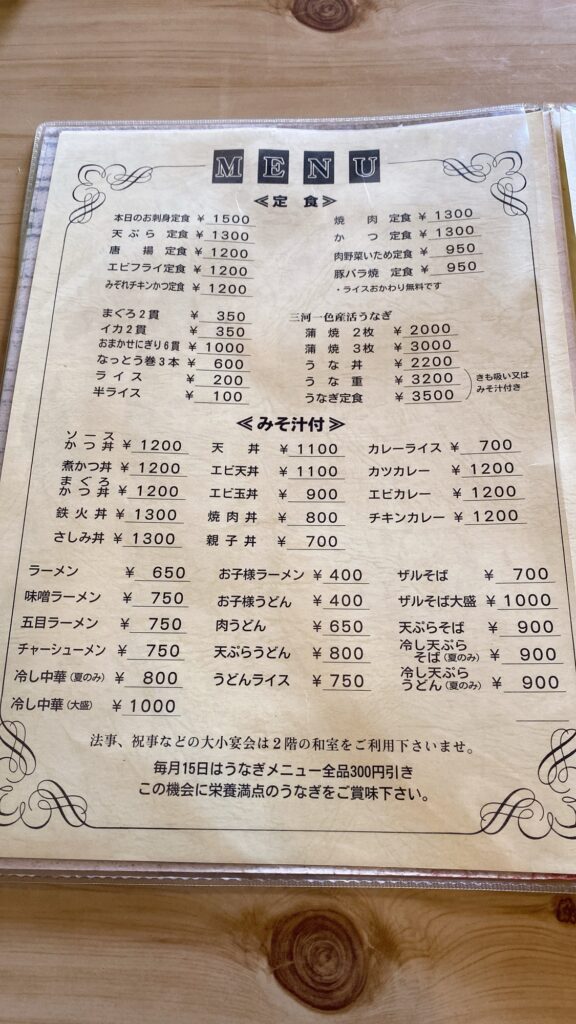 MENU
≪定 食≫
本日のお刺身定食 ¥ 1500
天ぷら 定食 ¥ 1300
唐 揚 定食 ¥ 1200
エビフライ定食 ¥ 1200
みぞれチキンかつ定食 ¥ 1200
焼 肉 定食 ¥ 1300
か つ 定食 ¥ 1300
肉野菜いため定食 ¥ 950
豚バラ焼 定食 ¥ 950
・ライスおかわり無料です
まぐろ2貫 ¥ 350
イカ2貫 ¥ 350
おまかせにぎり6貫 ¥ 1000
なっとう巻3本 ¥ 600
ライス ¥ 200
半ライス ¥ 100
三河一色産活うなぎ
蒲 焼 2枚 ¥ 2000
蒲 焼 3枚 ¥ 3000
う な 丼 ¥ 2200
う な 重 ¥ 3200
うなぎ定食 ¥ 3500
きも吸い又は
みそ汁付き
≪みそ汁付≫
ソース
かつ丼 ¥ 1200
煮かつ丼 ¥ 1200
まぐろ
かつ丼 ¥ 1200
鉄火丼 ¥ 1300
さしみ丼 ¥ 1300
天 丼 ¥ 1100
エビ天丼 ¥ 1100
エビ玉丼 ¥ 900
焼肉丼 ¥ 800
親子丼 ¥ 700
カレーライス ¥ 700
カツカレー ¥ 1200
エビカレー ¥ 1200
チキンカレー ¥ 1200
ラーメン ¥ 650
味噌ラーメン ¥ 750
五目ラーメン ¥ 750
チャーシューメン ¥ 750
冷し中華(夏のみ) ¥ 800
冷し中華(大盛) ¥ 1000
お子様ラーメン ¥ 400
お子様うどん ¥ 400
肉うどん ¥ 650
天ぷらうどん ¥ 800
うどんライス ¥ 750
ザルそば ¥ 700
ザルそば大盛 ¥ 1000
天ぷらそば ¥ 900
冷し天ぷら
そば(夏のみ) ¥ 900
冷し天ぷら
うどん(夏のみ) ¥ 900
法事、祝事などの大小宴会は2階の和室をご利用下さいませ。
毎月15日はうなぎメニュー全品300円引き
この機会に栄養満点のうなぎをご賞味下さい。